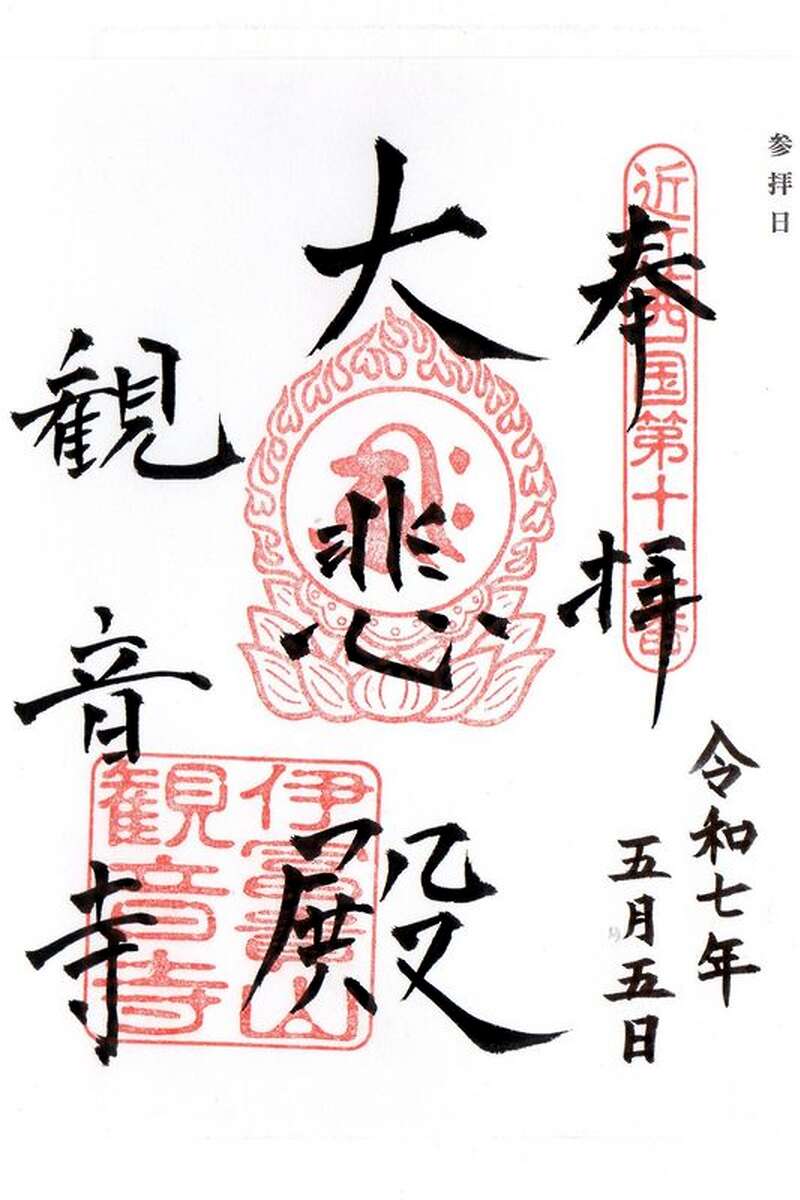 参拝日
近江西国第十
奉拝
令和七年
五月五日
大悲殿
観音寺
伊富貴山
観音寺